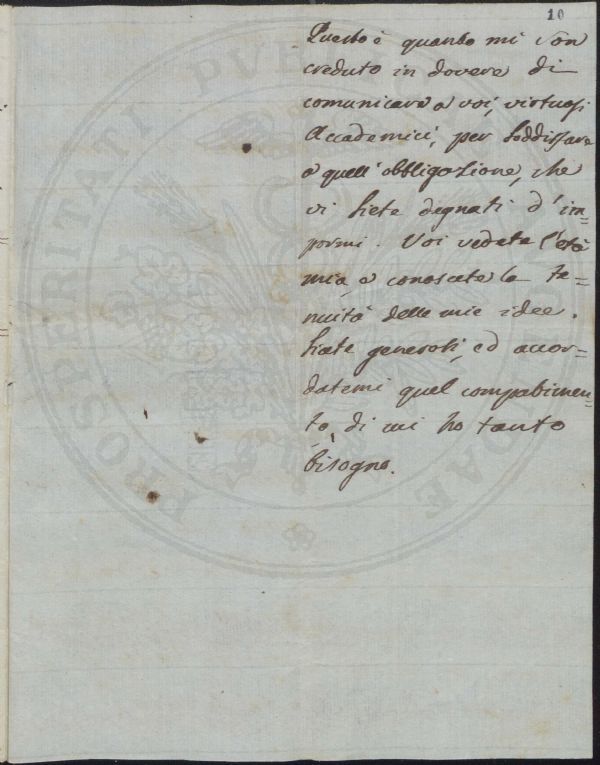 10
Questo è quanto mi son
creduto in dovere di
comunicare a voi, virtuosi
Accademici, per soddisfare
a quell' obbligazione, che
vi siete degnati d' im=
pormi. Voi vedete l'età
mia, e conoscete la te=
nuità delle mie idee.
Siate generosi, ed accor=
datemi quel compatimen=
to, di cui ho tanto
bisogno.
PROSPERITATI PUBLICAE